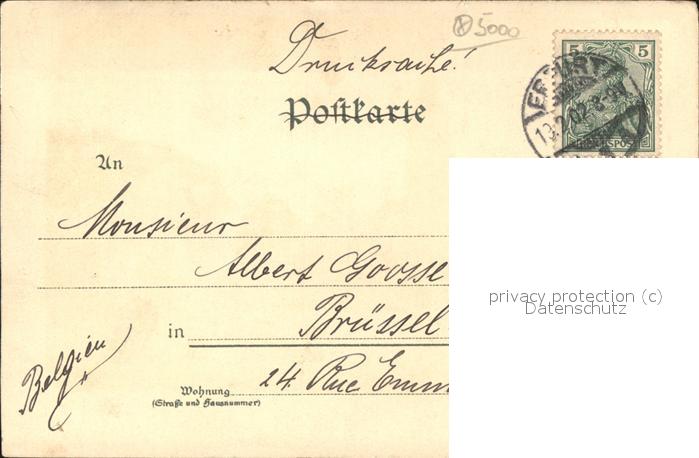 5000
Drucksache!
Postkarte
5 5
ERFURT
REICHSPOST
An
Monsieur
Albert Goosse
in Brüssel
Belgien
24 Rue Emm
Wohnung
(Straße und Hausnummer)
privacy protection (c)
Datenschutz